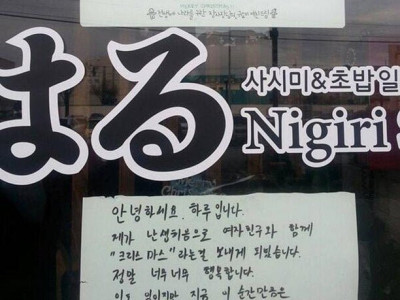 MERRY CHRISTMAS
はる
사시미&초밥 일
Nigiri S
안녕하세요. 하루입니다.
제가 난생처음으로 여자친구와 함께
"크리스마스"라는걸 보내게 되었습니다.
정말 너무너무 행복합니다.
지금 이 순간만큼은